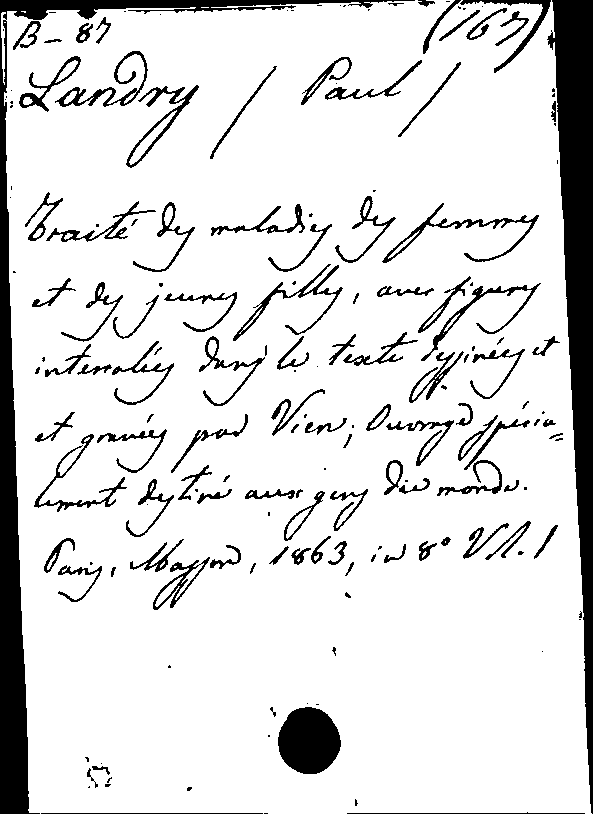 B - 87 (167)
Landry / Paul /
Traité des maladies des femmes
et des jeunes filles, avec figures
intercalées dans le texte dessinées et
et gravées par Vien; Ouvrage spécia=
lement destiné aux gens du monde.
Paris, Masson, 1863, in 8° VR. 1